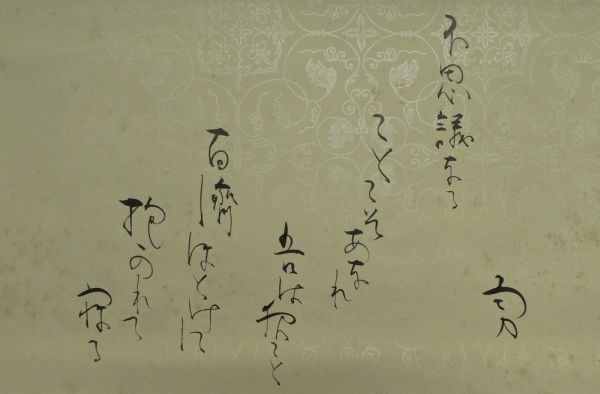 勇
不思議なる
ことこそ
あなれ
吾は夜こと
百済
ほとけに
抱かれて
寝る